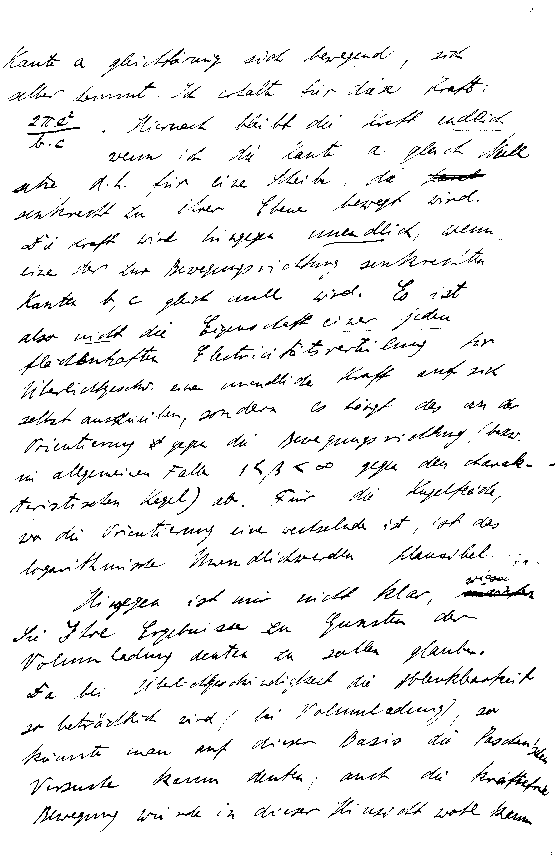 Kante a gleichförmig sich bewegend, sich
selber hemmt. Ich erhalte für diese Kraft:
2πε²/b.c . Hiernach bleibt die Kraft endlich
wenn ich die Kante a gleich Null
setze d.h. für eine Scheibe, die
senkrecht zu ihrer Ebene bewegt wird.
Die Kraft wird hingegen unendlich, wenn
eine der zur Bewegungsrichtung senkrechten
Kanten b, c gleich null wird. Es ist
also nicht die Eigenschaft einer jeden
flächenhaften Electricitätsverteilung für
Überlichtgeschw. eine unendliche Kraft auf sich
selbst auszuüben, sondern es hängt das an der
Orientierung gegen die Bewegungsrichtung (bezw.
im allgemeinen Falle 1 < β < ∞ gegen den charak-
teristischen Kegel) ab. Für die Kugelfläche,
wo die Orientierung eine wechselnde ist, ist das
logarithmische Unendlichwerden plausibel.
Hingegen ist mir nicht klar, wieso
Sie Ihre Ergebnisse zu Gunsten der
Volumladung deuten zu sollen glauben.
Da bei Überlichtgeschwindigkeit die Ablenkbarkeit
so beträchtlich wird (bei Volumladung), so
könnte man auf dieser Basis die Paschen'schen
Versuche kaum deuten; auch die kräftefreie
Bewegung würde in dieser Hinsicht wohl kaum